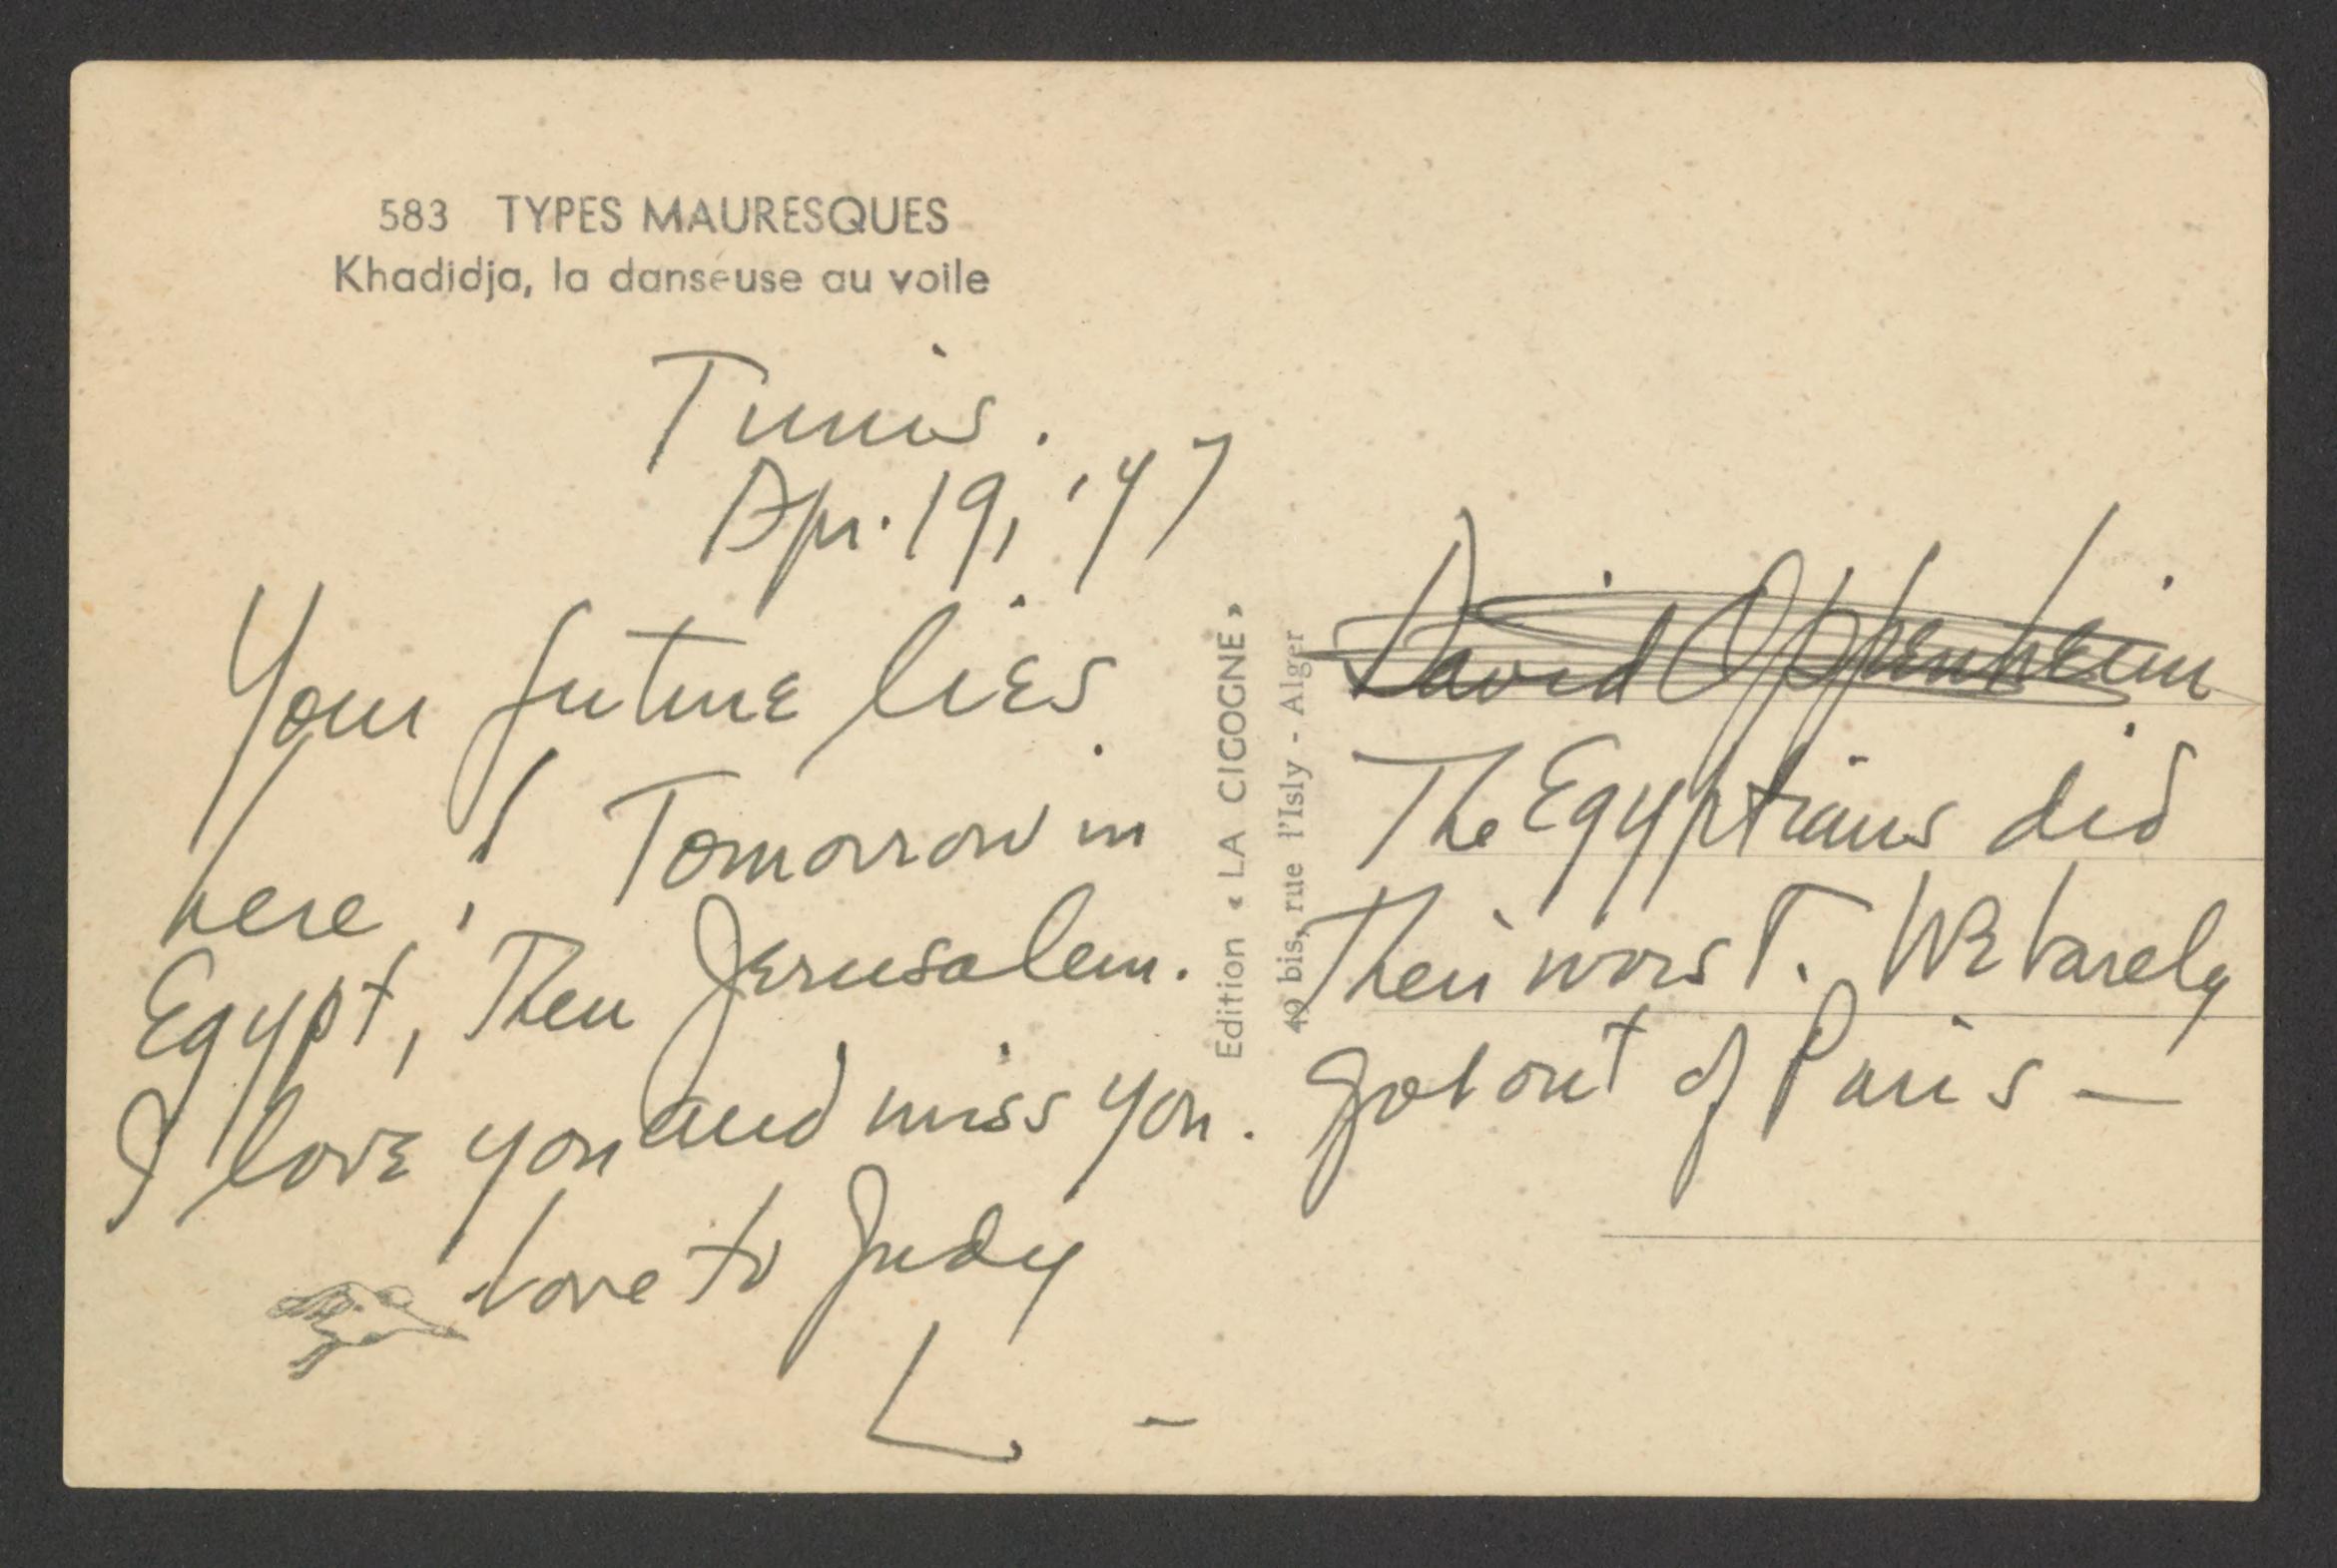 583 TYPES MAURESQUES
Khadidja, la danseuse au voile
Tunis.
Apr. 19, '47
Your future lies
here! Tomorrow in
Egypt, Then Jerusalem.
I love you and miss you.
Love to Judy
L. –
Edition « LA CIGOGNE »
49 bis, rue l'Isly - Alger
David Oppenheim
The Egyptians did
Their worst. We barely
got out of Paris —